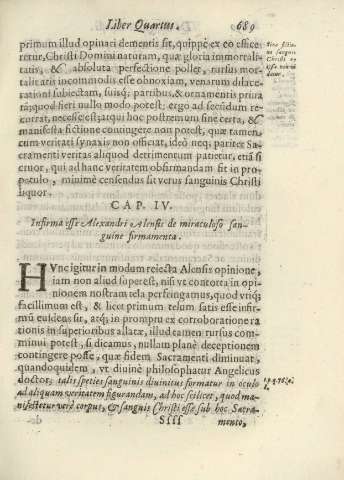 Liber Quartus. 689
primum illud opinari dementis sit, quippè ex eo effice
retur, Christi Domini naturam, quæ gloria immortali-
tatis, & absoluta perfectione pollet, rursus mor-
talitatis incommodis esse obnoxiam, venarum dilace-
rationi subiectam, suisq; partibus, & ornamentis priua
tā; quod fieri nullo modo potest: ergo ad secundum re
currat, necesse est; atqui hoc postremum sine certa, &
manifesta fictione contingere non potest, quæ tamen,
cum veritati synaxis non officiat, ideo neq; pariter Sa-
cramenti veritas aliquod detrimentum patietur, etiā si
cruor, qui ad hanc veritatem obfirmandam fit in pro-
patulo, minimè censendus sit verus sanguinis Christi
liquor.
CAP. IV.
Infirma esse Alexandri Alensis de miraculoso san-
guine firmamenta.
HVnc igitur in modum reiecta Alensis opinione,
iam non aliud superest, nisi vt contorta in opi-
nionem nostram tela perfringamus, quod vtiq;
facillimum est, & licet primum telum satis esse infir-
mū euidens sit, atq; in promptu ex corroboratione ra
tionis in superioribus allatæ, illud tamen rursus com-
minui potest, si dicamus, nullam planè deceptionem
contingere posse, quæ fidem Sacramenti diminuat,
quandoquidem, vt diuinè philosophatur Angelicus
doctor: talis species sanguinis diuinitus formatur in oculo
ad aliquam veritatem figurandam, ad hoc scilicet, quod ma-
nifestetur verè corpus, & sanguis Christi esse sub hoc Sacra-
Sſſſ mento,